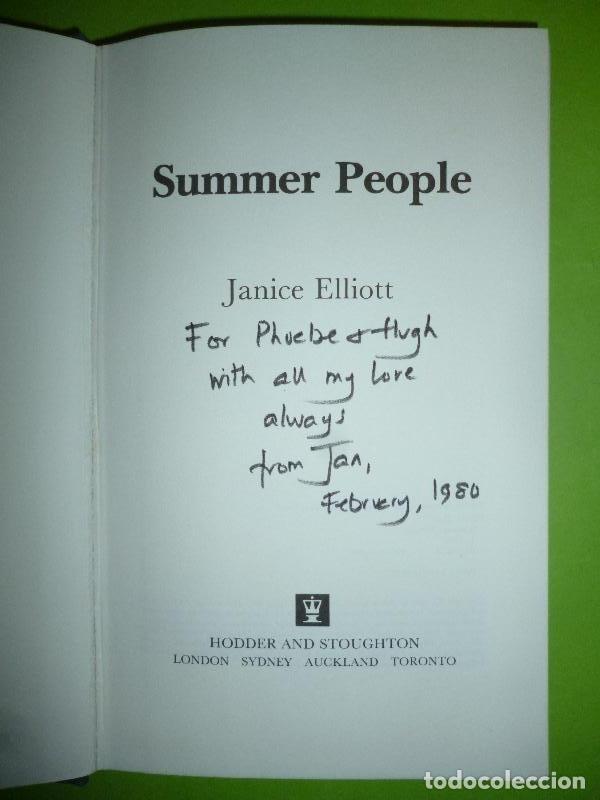 Summer People
Janice Elliott
For Phoebe & Hugh
with all my love
always
from Jan,
February, 1980
HODDER AND STOUGHTON
LONDON SYDNEY AUCKLAND TORONTO
todocoleccion